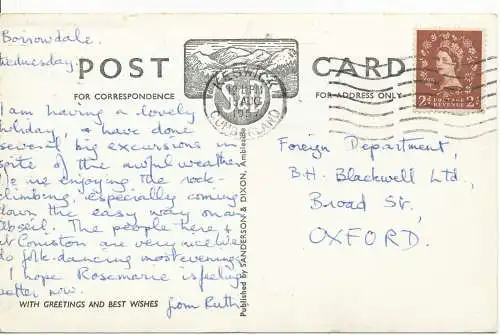 Borrowdale.
Wednesday.
POST CARD
FOR CORRESPONDENCE
FOR ADDRESS ONLY
KESWICK
AUG
CUMBERLAND
POSTAGE
REVENUE
2d 2d
I am having a lovely
holiday, & have done
several big excursions in
spite of the awful weather.
We are enjoying the rock-
climbing, especially coming
down the easy way on an
abseil. The people here &
at Coniston are very nice. We
do folk-dancing most evenings.
I hope Rosemarie is feeling
better now.
from Ruth
WITH GREETINGS AND BEST WISHES
Published by SANDERSON & DIXON, Ambleside
Foreign Department,
B.H. Blackwell Ltd,
Broad St,
OXFORD.